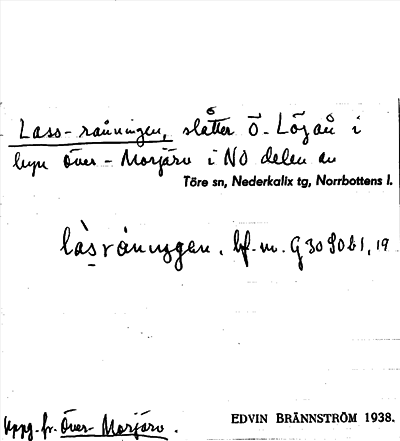 Lass-rånningen, slåtter ö. Lögån i
byn Över-Morjärv i NO delen av
Töre sn, Nederkalix tg, Norrbottens l.
làsrånıŋgen. bf. m. G 30 9 0 b 1, 19
Uppg. fr. Över-Morjärv.
EDVIN BRÄNNSTRÖM 1938.